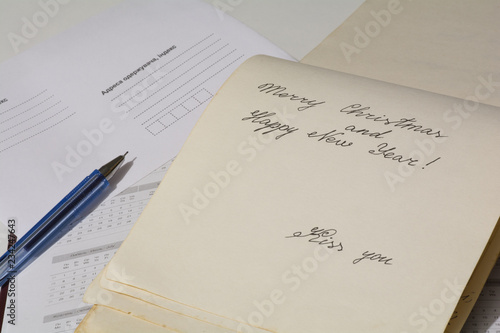 Адреса одержувача, індекс
Merry Christmas
and
Happy New Year!
Kiss you
Adobe Stock
234247643